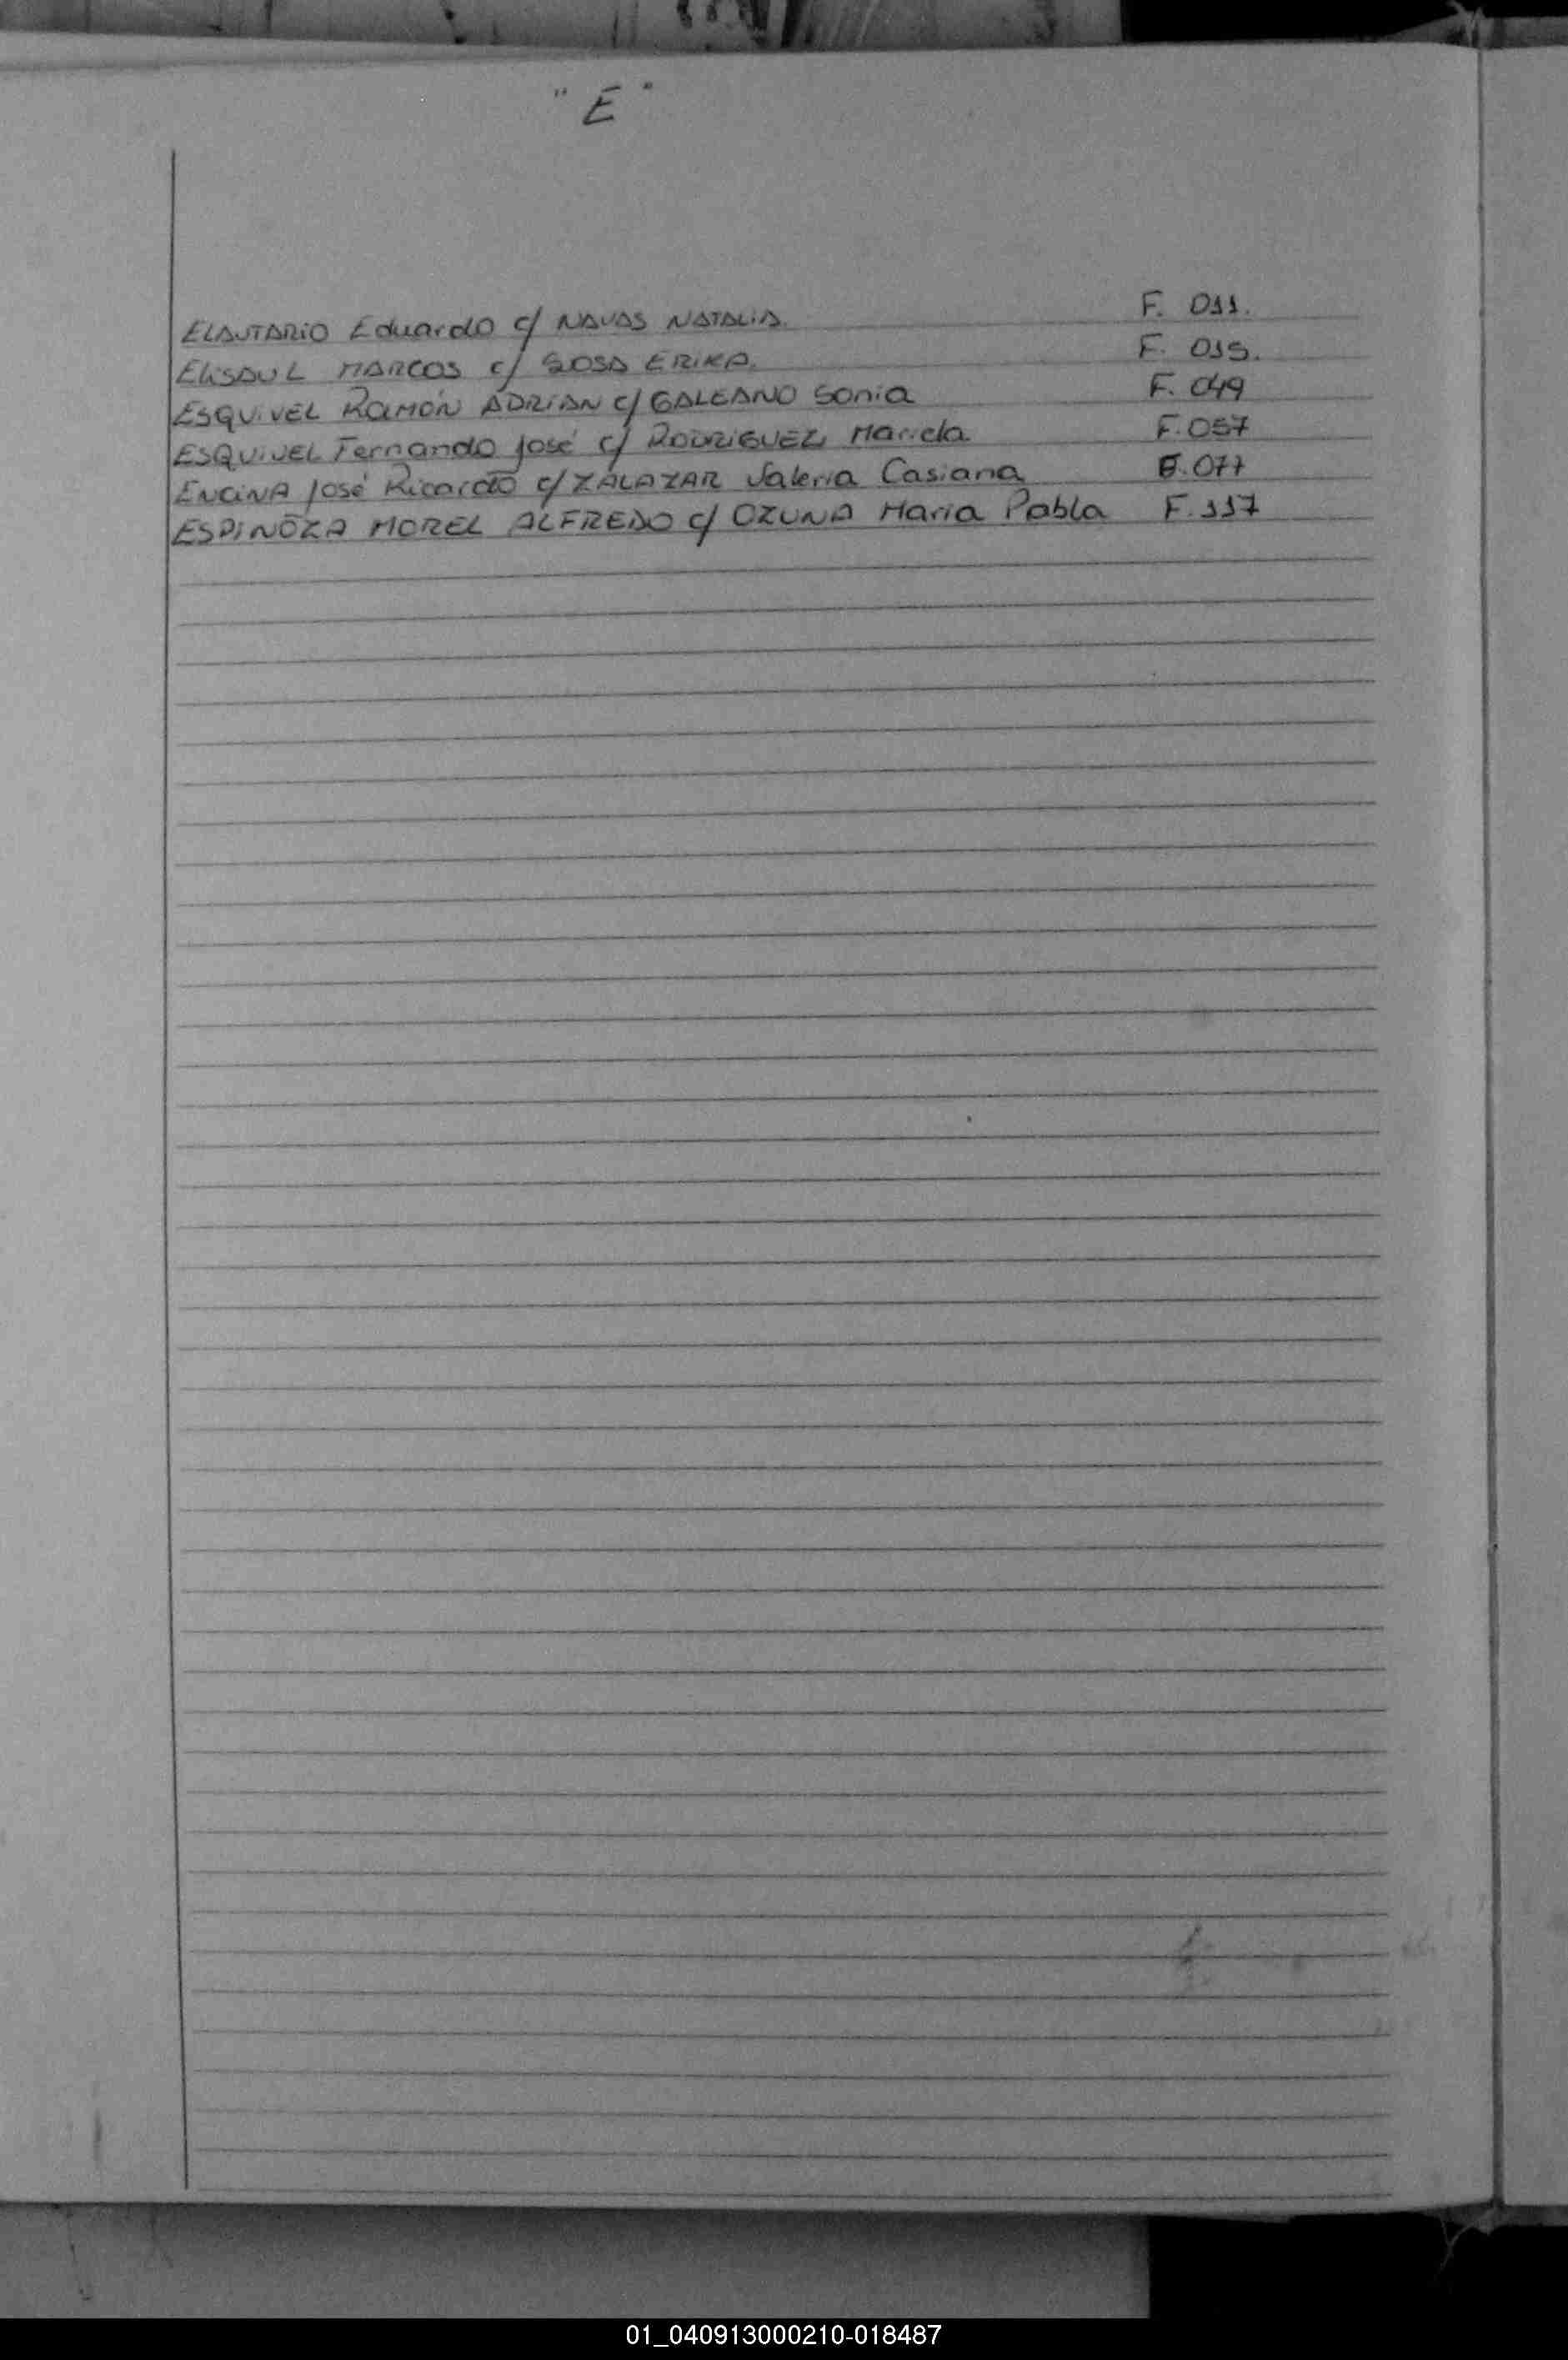 "E"
ELAUTARIO Eduardo c/ NAVAS NATALIA. F. 011.
ELISAUL MARCOS c/ SOSA ERIKA. F. 015.
ESQUIVEL RAMÓN ADRIAN c/ GALEANO Sonia F. 049
ESQUIVEL Fernando José c/ RODRIGUEZ Mariela F. 057
ENCINA José Ricardo c/ ZALAZAR Valeria Casiana F. 077
ESPINOZA MOREL ALFREDO c/ OZUNA Maria Pabla F. 117
01_040913000210-018487